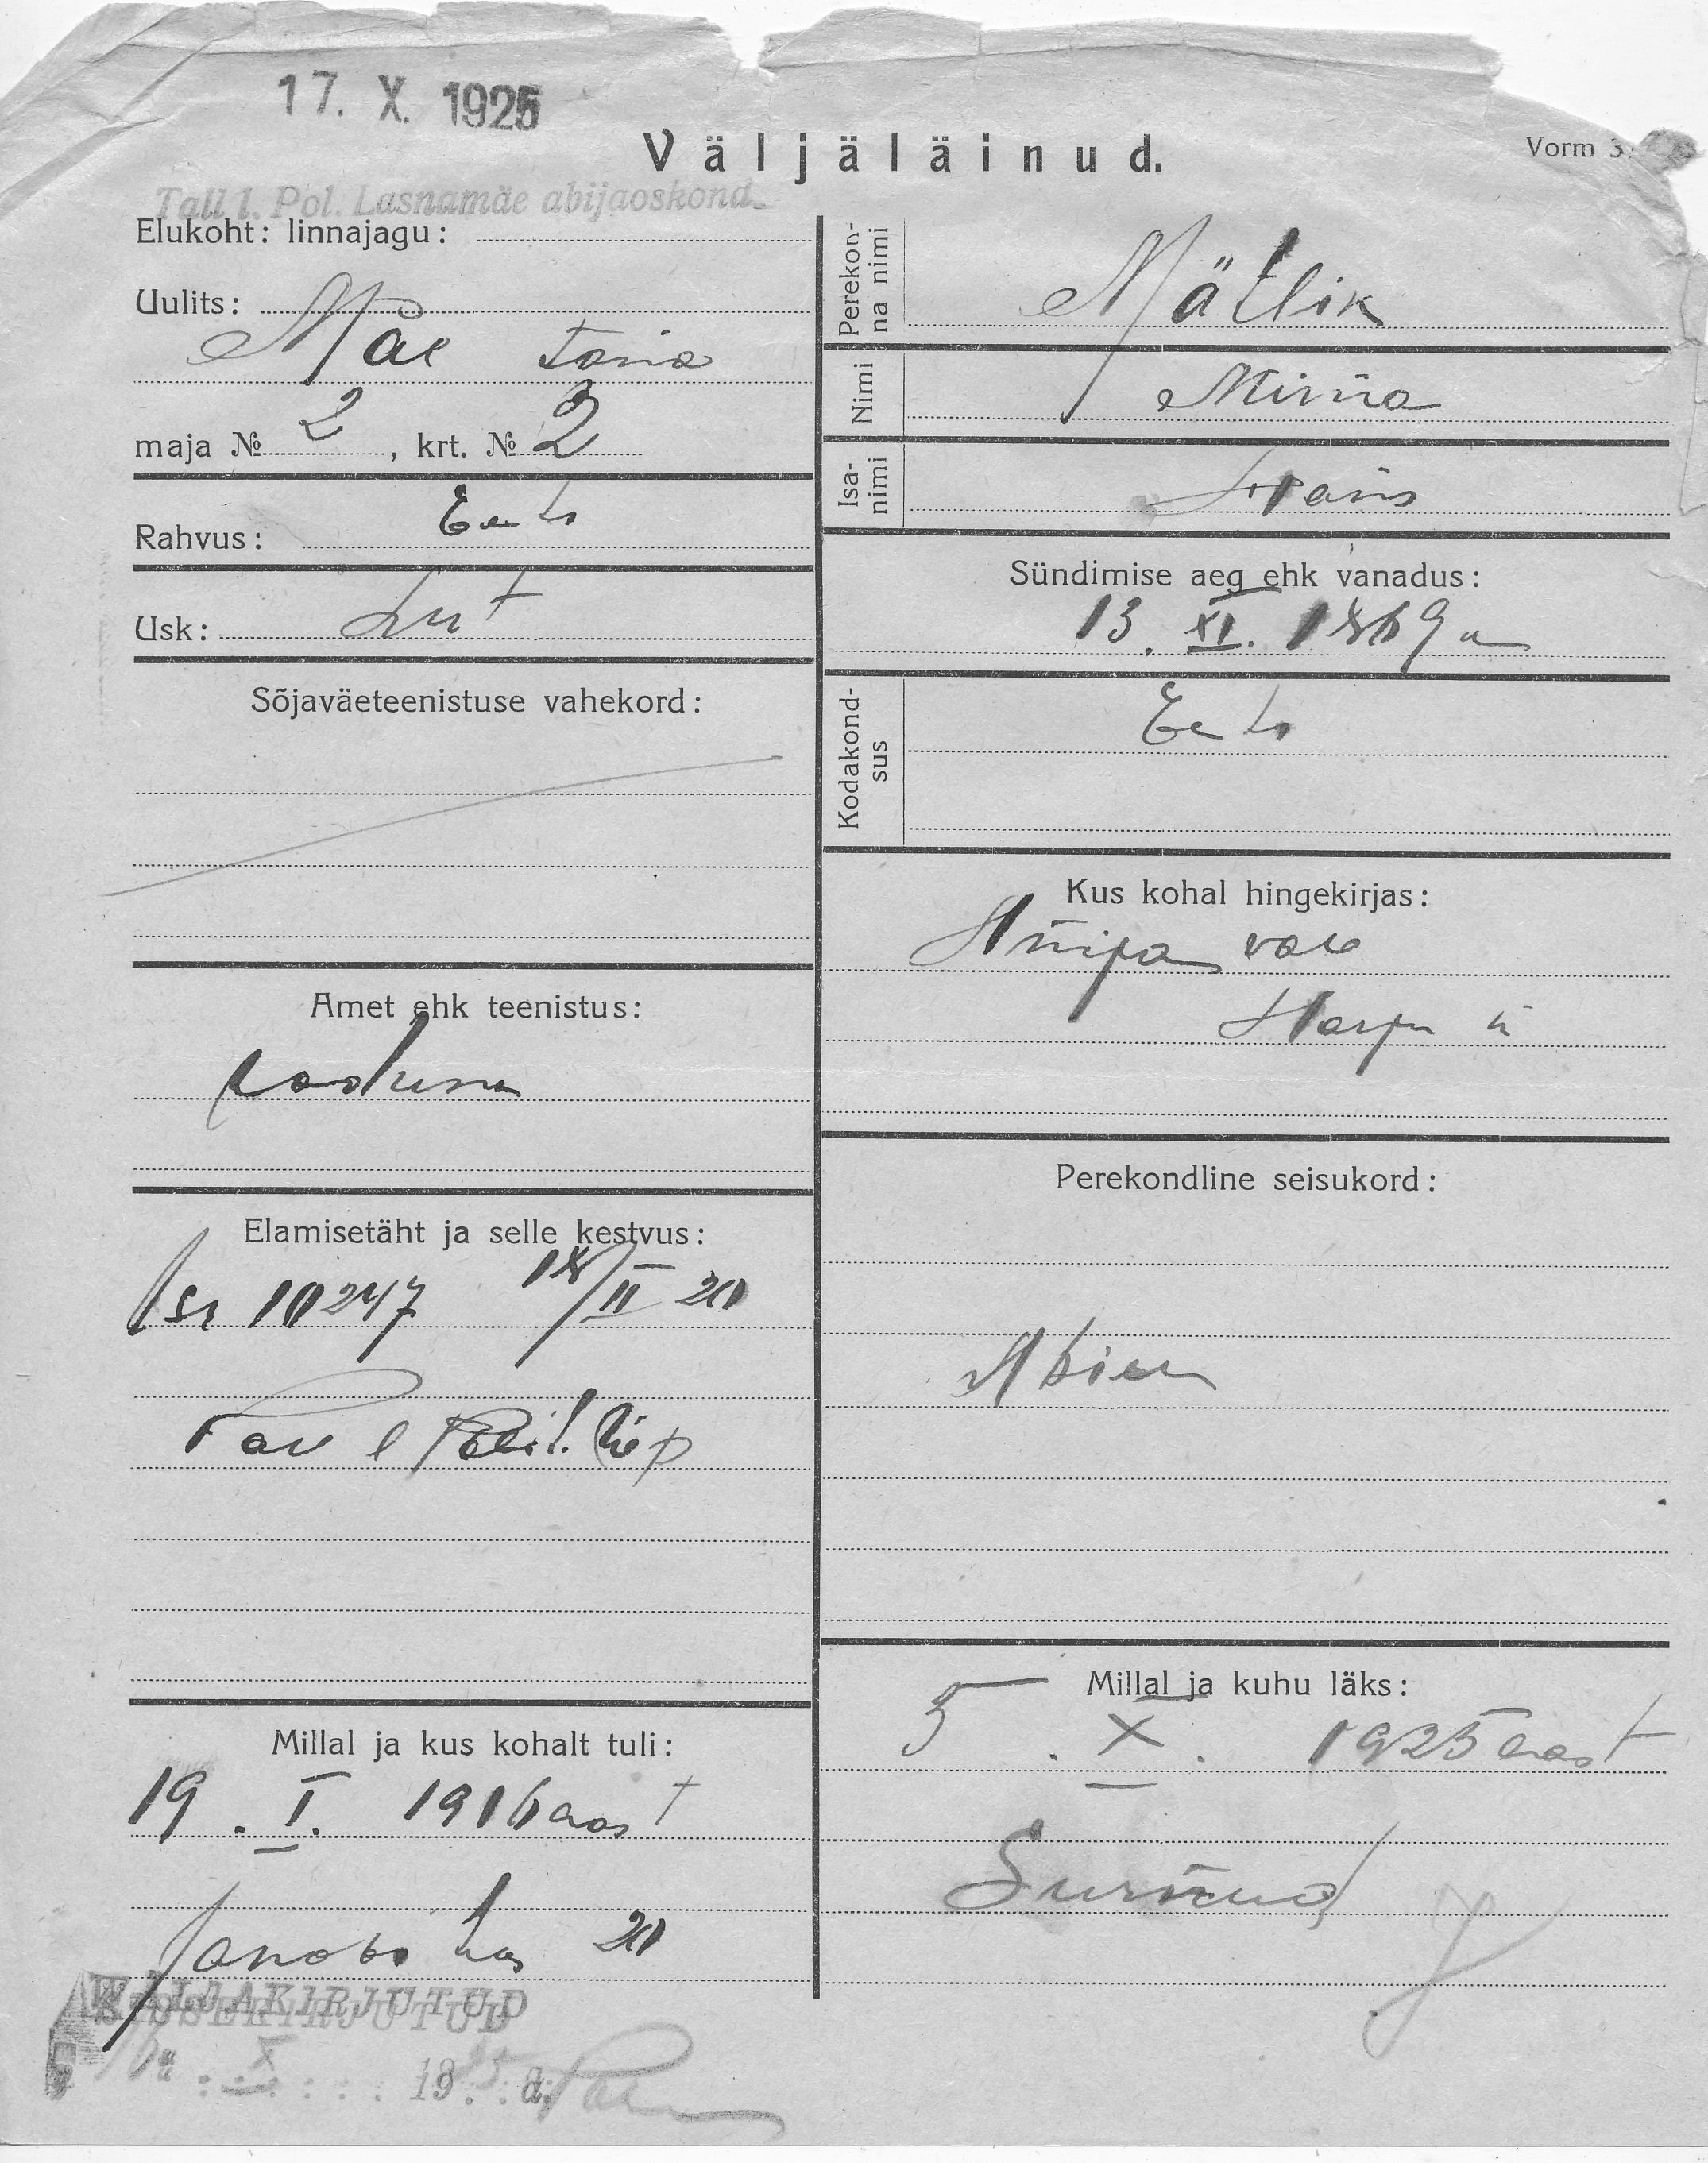 17. X. 1925
Väljäläinud.
Vorm 3.
Tall I. Pol. Lasnamäe abijaoskond.
Elukoht: linnajagu:
Uulits:
Mäe
maja № 2, krt. № 2
Rahvus: Eesti
Usk: Lut
Sõjaväeteenistuse vahekord:
Amet ehk teenistus:
Elamisetäht ja selle kestvus:
10247 18/II 20
Millal ja kus kohalt tuli:
19. I. 1916 aast
20
WÄLJAKIRJUTUD
SISSEKIRJUTUD
X 1925 a.
Perekon-
na nimi
Mätlik
Nimi
Miina
Isa-
nimi
Hans
Sündimise aeg ehk vanadus:
13. XI. 1869 a
Kodakond-
sus
Eesti
Kus kohal hingekirjas:
Harju
Perekondline seisukord:
Abielu
Millal ja kuhu läks:
5. X. 1925 aast
Surnud